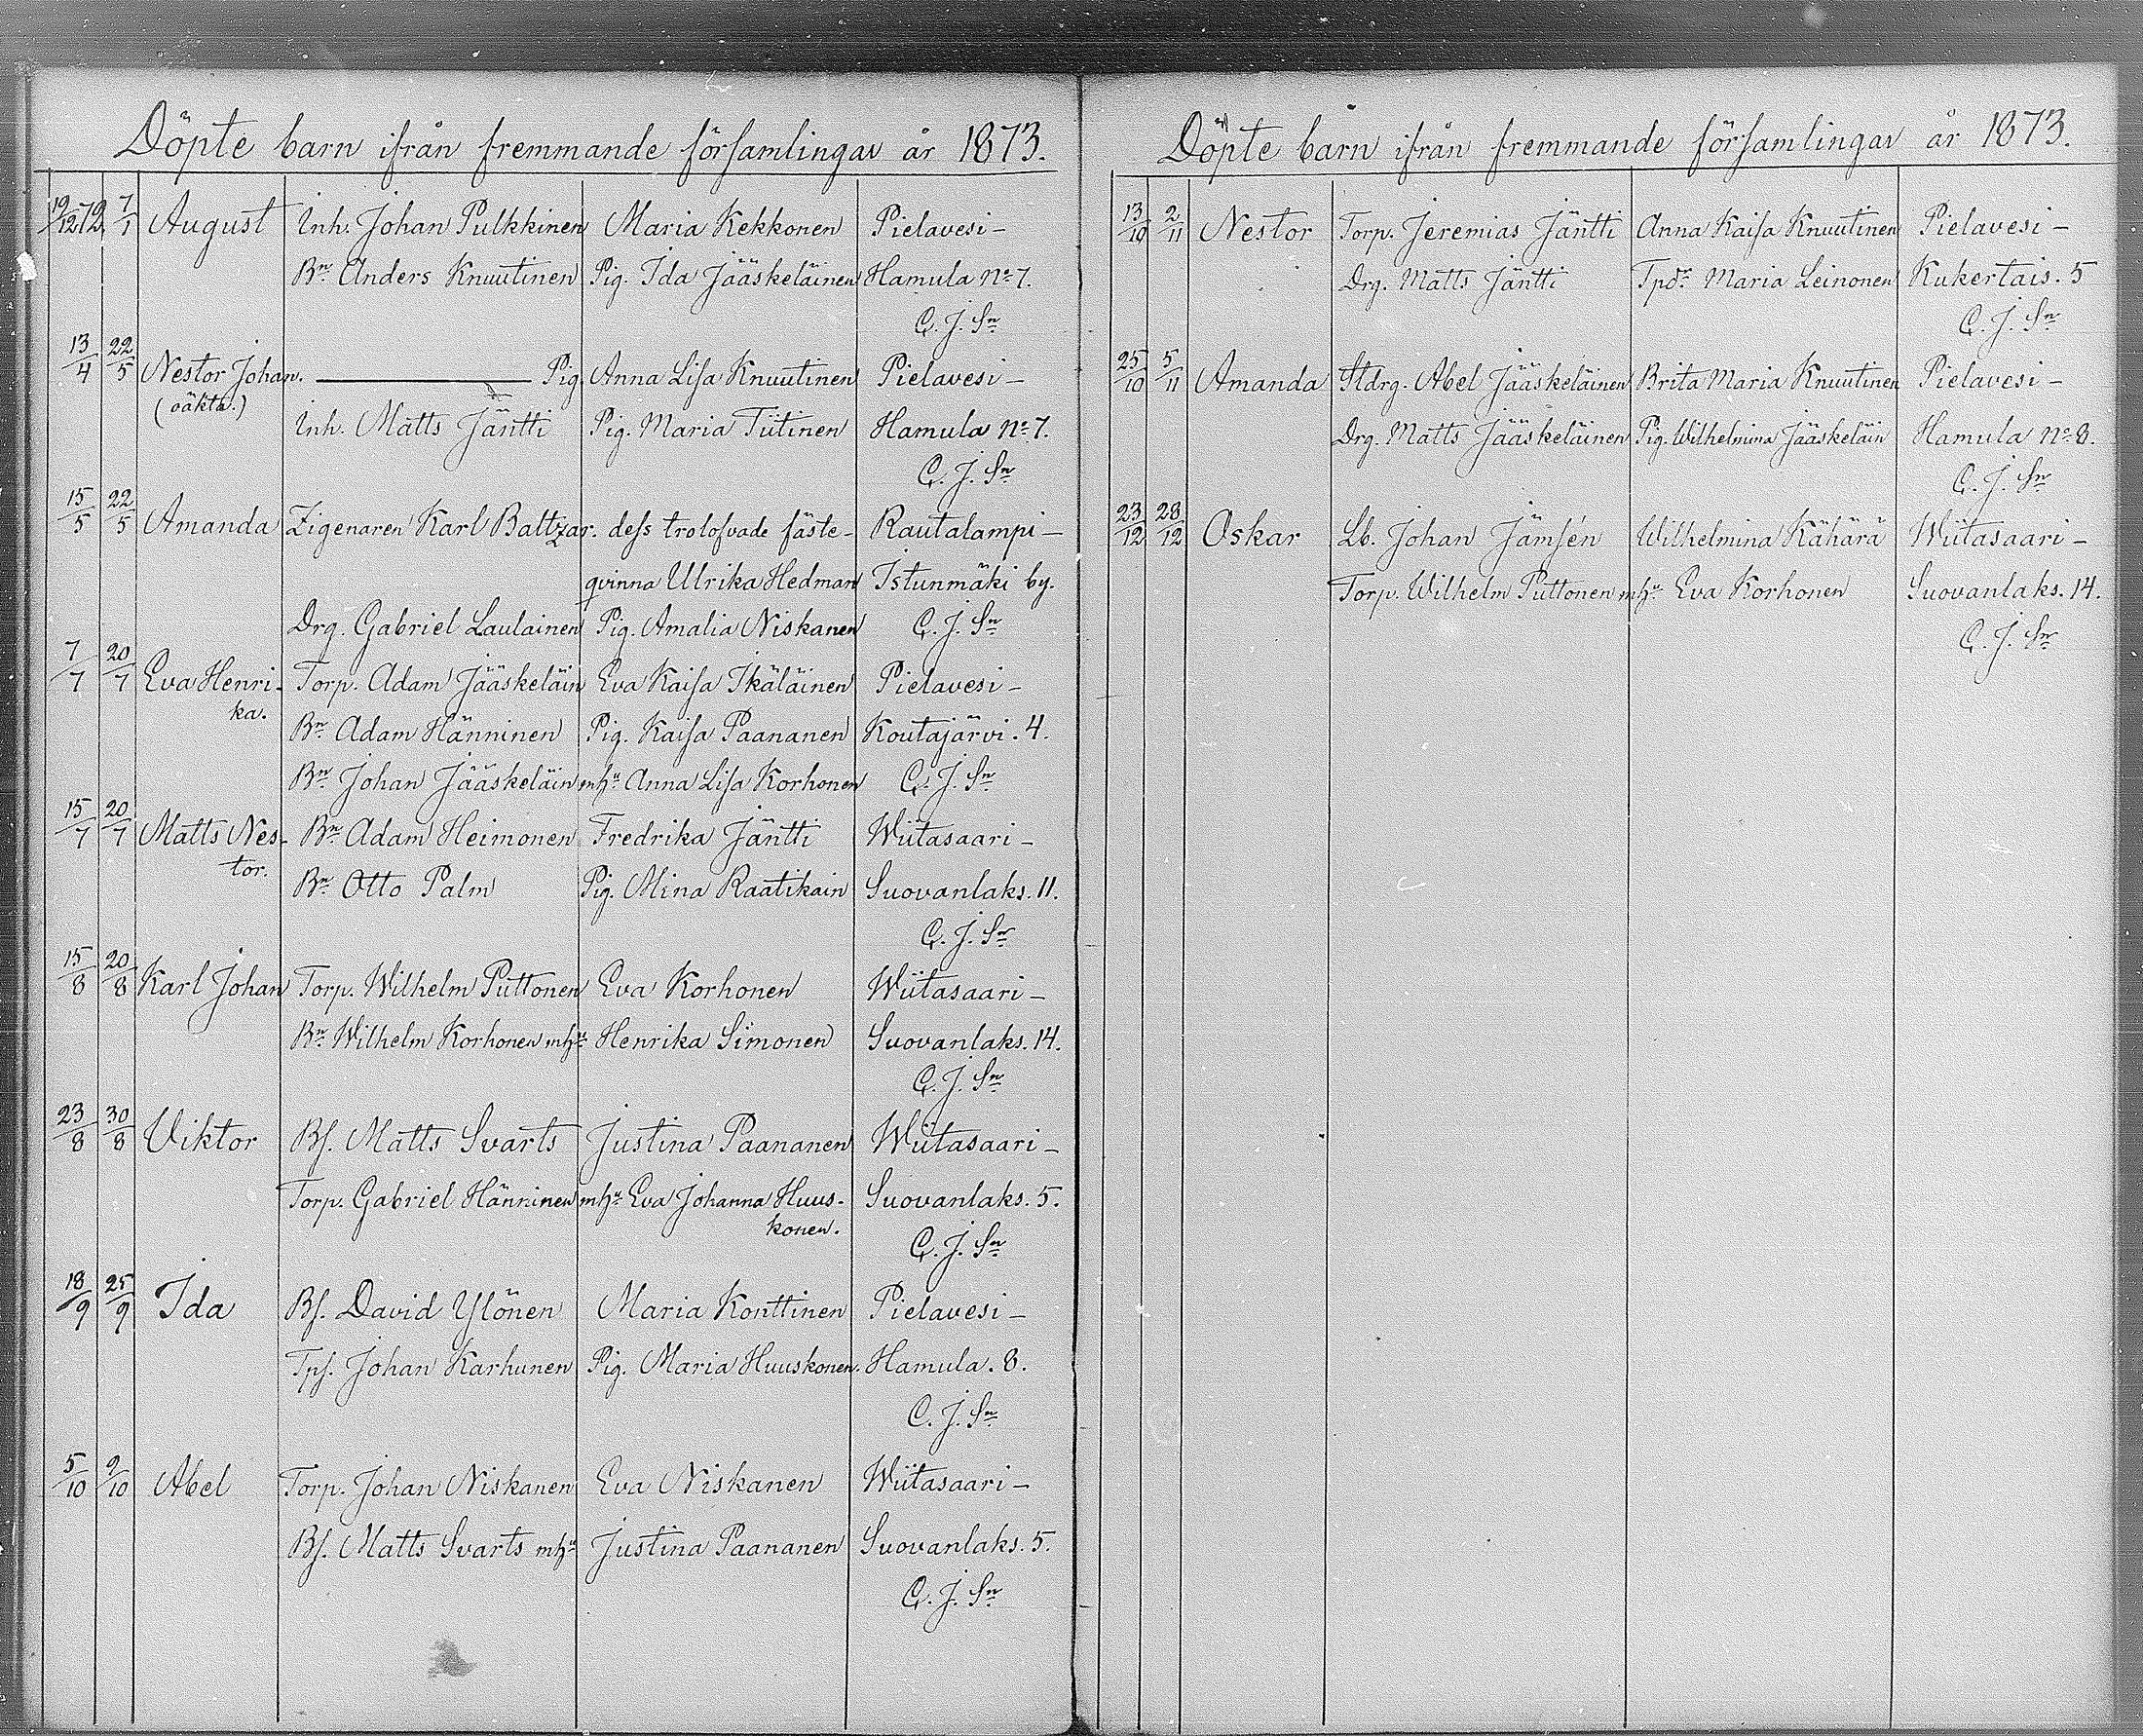 Döpte barn ifrån fremmande församlingar år 1873.
19/12 72 7/1 August Inh. Johan Pulkkinen Maria Kekkonen Pielavesi-
Bn Anders Knuutinen Pig. Ida Jääskeläinen Hamula No 7.
C. J. Sn
13/4 22/5 Nestor Johan. Pig. Anna Lisa Knuutinen Pielavesi-
(oäkta.) Inh. Matts Jäntti Pig. Maria Tiitinen Hamula No 7.
C. J. Sn
15/5 22/5 Amanda Zigenaren Karl Baltzar. dess trolofvade fäste- Rautalampi-
qvinna Ulrika Hedman Istunmäki by.
Drg. Gabriel Laulainen Pig. Amalia Niskanen C. J. Sn
7/7 20/7 Eva Henri- Torp. Adam Jääskeläin Eva Kaisa Ikäläinen Pielavesi-
ka. Bn Adam Hänninen Pig. Kaisa Paananen Koutajärvi. 4.
Bn Johan Jääskeläin mhu Anna Lisa Korhonen C. J. Sn
15/7 20/7 Matts Nes- Bn Adam Heimonen Fredrika Jäntti Wiitasaari-
tor. Bn Otto Palm Pig. Mina Raatikain Suovanlaks. 11.
C. J. Sn
15/8 20/8 Karl Johan Torp. Wilhelm Puttonen Eva Korhonen Wiitasaari-
Bn Wilhelm Korhonen mhu Henrika Simonen Suovanlaks. 14.
C. J. Sn
23/8 30/8 Viktor Bs. Matts Svarts Justina Paananen Wiitasaari-
Torp. Gabriel Hänninen mhu Eva Johanna Huus- Suovanlaks. 5.
konen.
C. J. Sn
18/9 25/9 Ida Bs. David Ylönen Maria Konttinen Pielavesi-
Tps. Johan Karhunen Pig. Maria Huuskonen. Hamula. 8.
C. J. Sn
5/10 9/10 Abel Torp. Johan Niskanen Eva Niskanen Wiitasaari-
Bs. Matts Svarts mhu Justina Paananen Suovanlaks. 5.
C. J. Sn
Döpte barn ifrån fremmande församlingar år 1873.
13/10 2/11 Nestor Torp. Jeremias Jäntti Anna Kaisa Knuutinen Pielavesi-
Drg. Matts Jäntti Tpdr Maria Leinonen Kukertais. 5
C. J. Sn
25/10 5/11 Amanda Stdrg. Abel Jääskeläinen Brita Maria Knuutinen Pielavesi-
Drg. Matts Jääskeläinen Pig. Wilhelmina Jääskeläin Hamula No 8.
C. J. Sn
23/12 28/12 Oskar Lb. Johan Jämsén Wilhelmina Kähärä Wiitasaari-
Torp. Wilhelm Puttonen mhu Eva Korhonen Suovanlaks. 14.
C. J. Sn